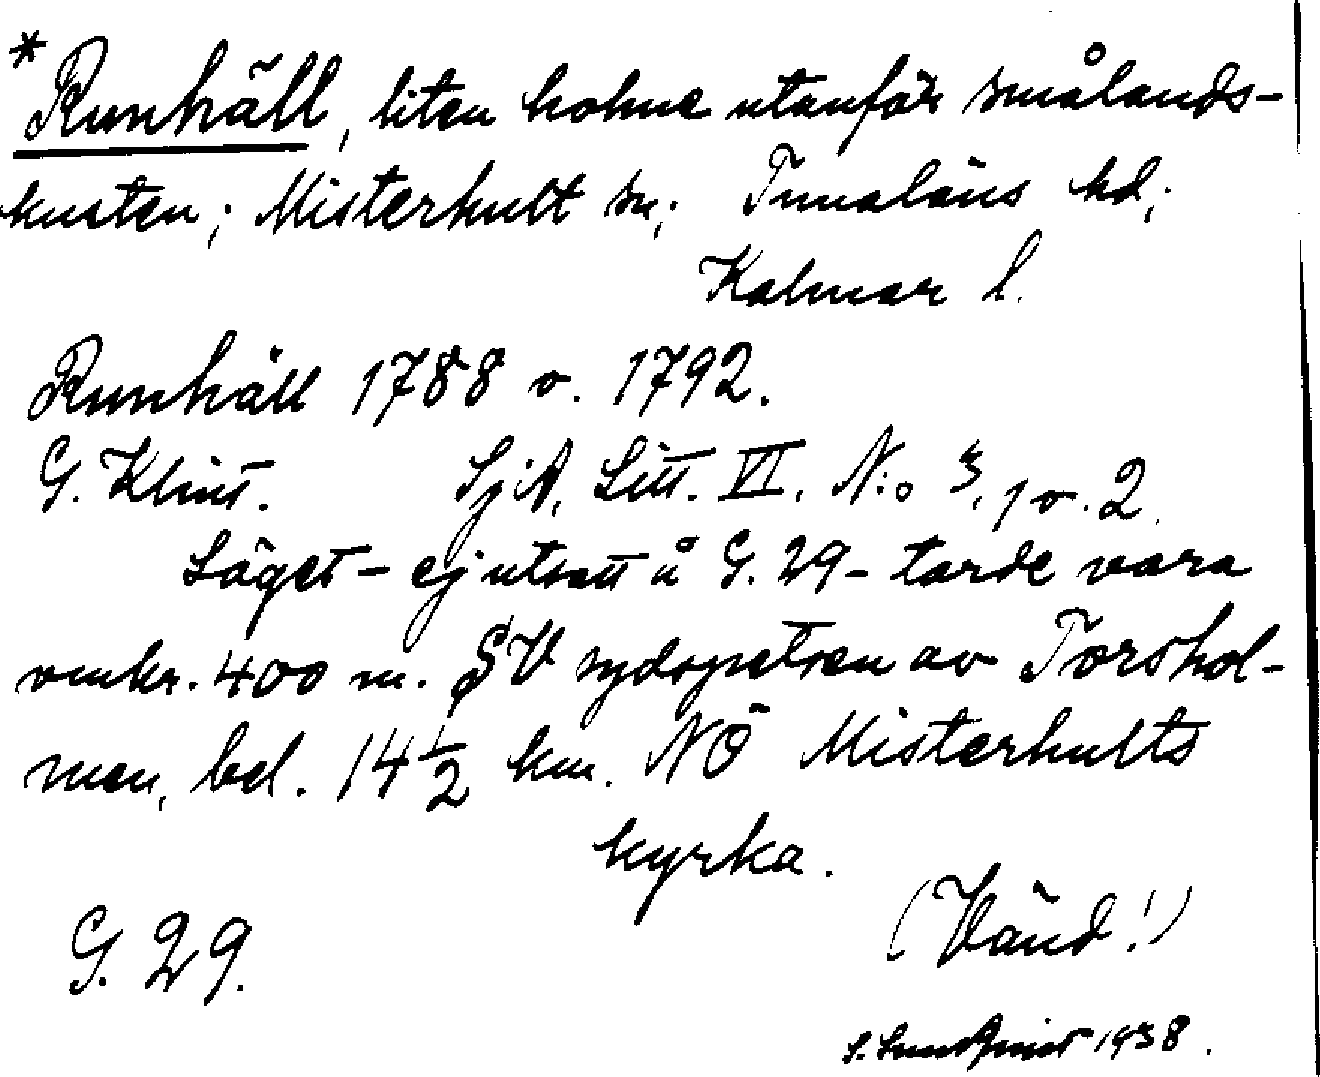 *Runhäll, liten holme utanför smålands-
kusten; Misterhult sn; Tunaläns hd;
Kalmar l.
Runhäll 1788 o. 1792.
G. Klint. SjA, Litt. VI. N:o 3, 1 o. 2.
Läget - ej utsatt å G. 29 - torde vara
omkr. 400 m. SV sydspetsen av Torshol-
men, bel. 14 1/2 km. NÖ Misterhults
kyrka.
(Vänd!)
G. 29.
S. Sundqvist 1938.